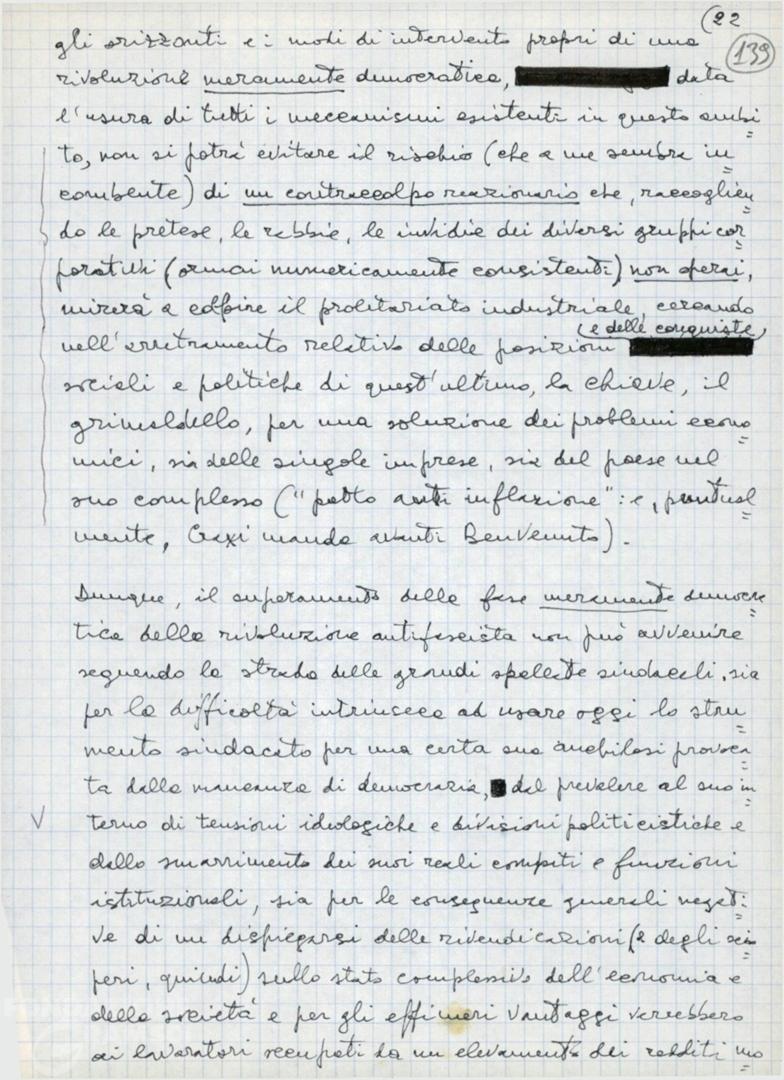 (22
139
gli orizzonti e i modi di intervento propri di una
rivoluzione meramente democratica, data
l'usura di tutti i meccanismi esistenti in questo ambi=
to, non si potrà evitare il rischio (che a me sembra in=
combente) di un contraccolpo reazionario che, raccoglien=
do le pretese, le rabbie, le invidie dei diversi gruppi cor=
porativi (ormai numericamente consistenti) non operai,
mirerà a colpire il prolitariato industriale, cercando
e delle conquiste
nell'arretramento relativo delle posizioni
sociali e politiche di quest'ultimo, la chiave, il
grimaldello, per una soluzione dei problemi econo=
mici, sia delle singole imprese, sia del paese nel
suo complesso ("patto anti inflazione": e, puntual=
mente, Craxi manda avanti Benvenuto).
Dunque, il superamento della fase meramente democra=
tica della rivoluzione antifascista non può avvenire
seguendo la strada delle grandi spallate sindacali, sia
per la difficoltà intrinseca ad usare oggi lo stru=
mento sindacato per una certa sua anchilosi provoca=
ta dalla mancanza di democrazia, dal prevalere al suo in=
terno di tensioni ideologiche e divisioni politicistiche e
dallo smarrimento dei suoi reali compiti e funzioni
istituzionali, sia per le conseguenze generali negati=
ve di un dispiegarsi delle rivendicazioni (e degli scio=
peri, quindi) sullo stato complessivo dell'economia e
della società e per gli effimeri vantaggi verrebbero
ai lavoratori occupati da un elevamento dei redditi mo=